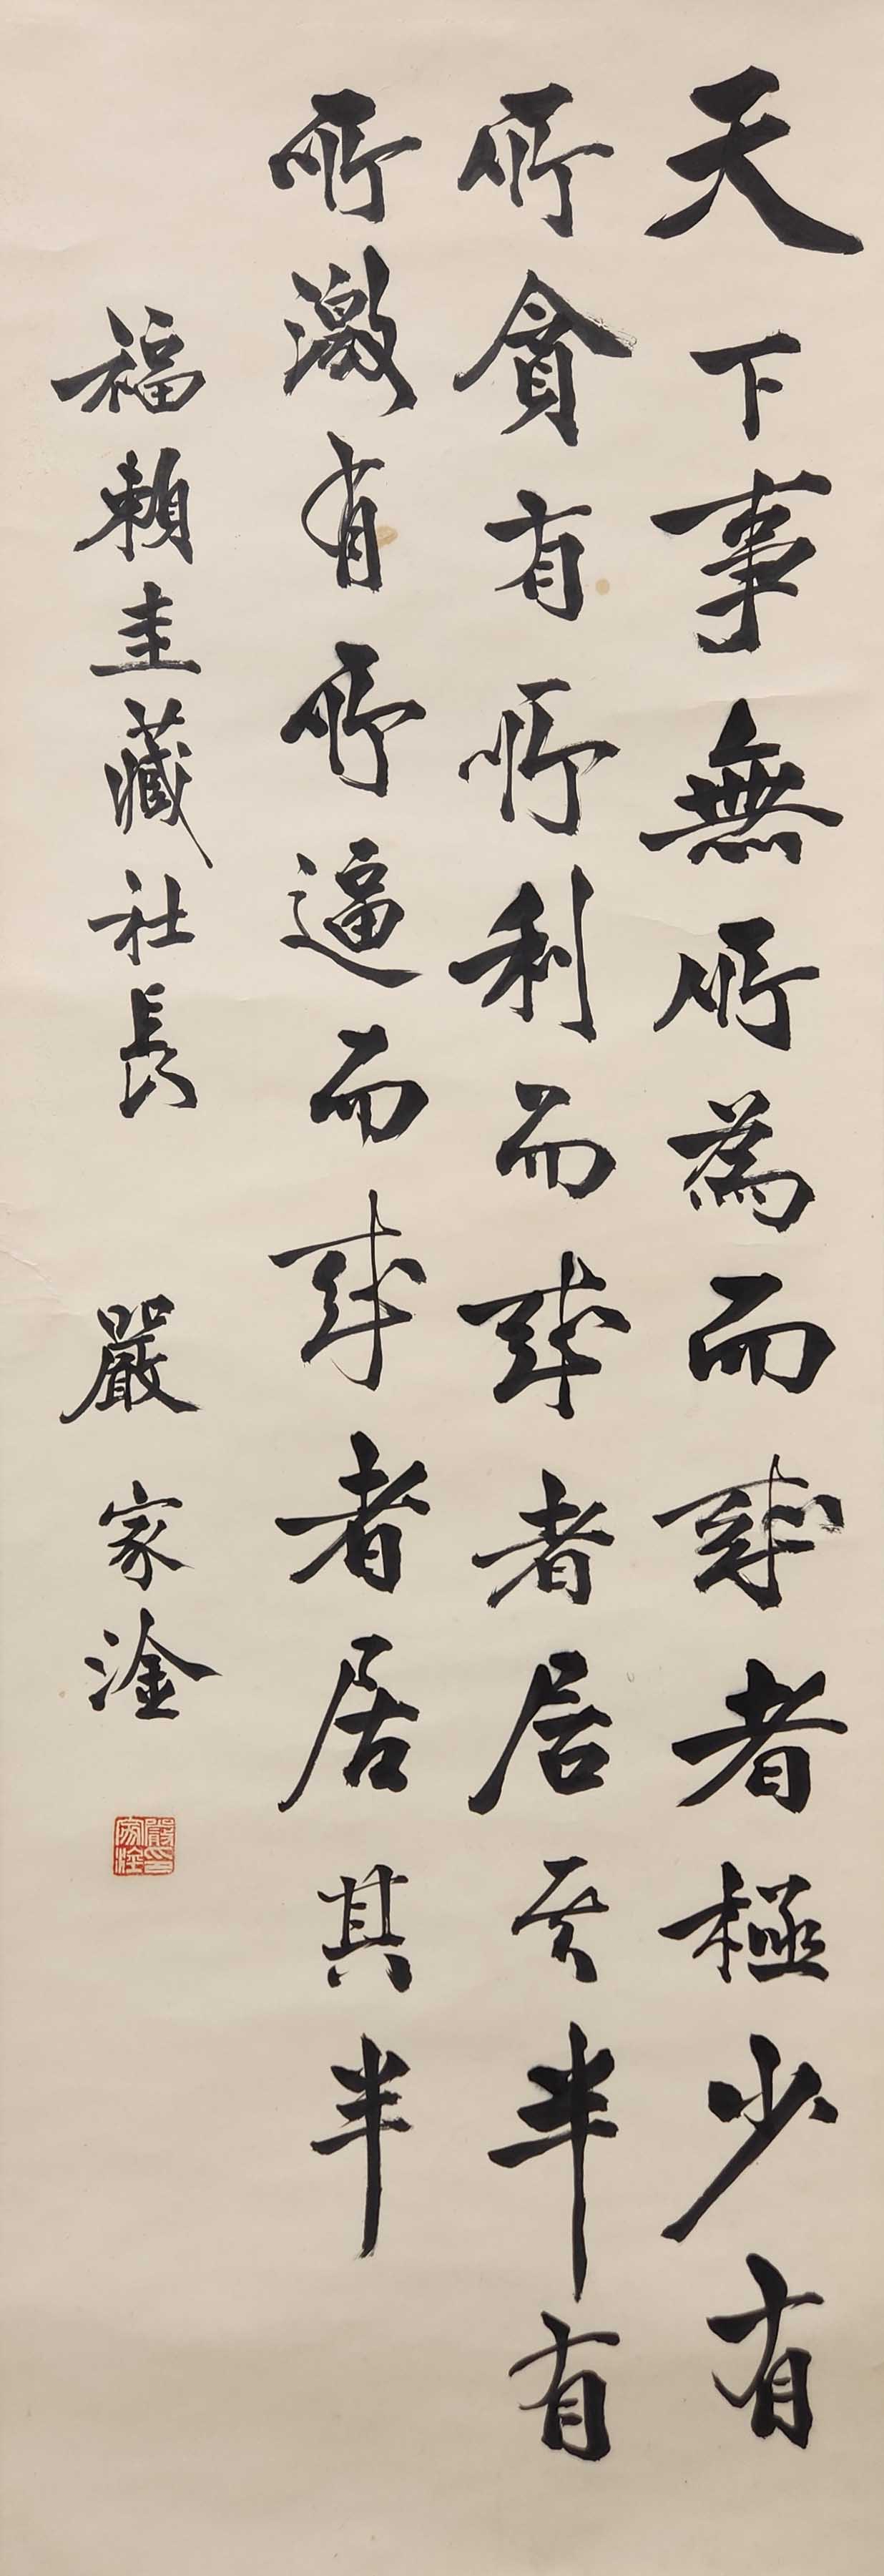 天下事無所為而成者極少有
所貪有所利而成者居其半有
所激有所逼而成者居其半
福賴圭藏社長
嚴家淦
嚴家淦印